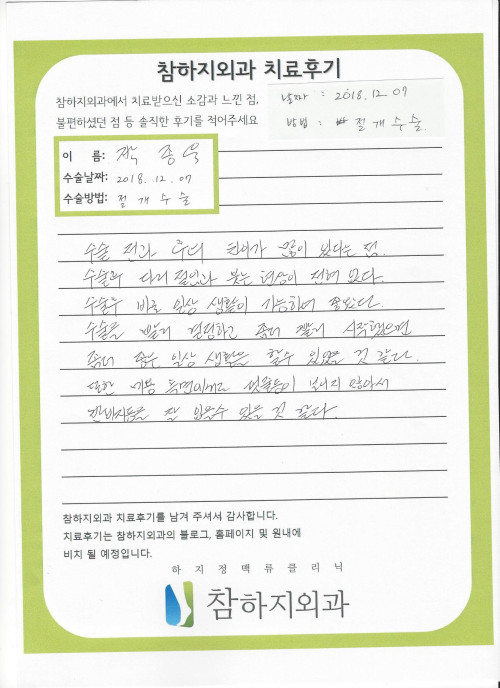 참하지외과 치료후기
참하지외과에서 치료받으신 소감과 느낀 점,
불편하셨던 점 등 솔직한 후기를 적어주세요
날짜 : 2018.12.07
방법 : 절개수술.
이 름: 종욱
수술날짜: 2018.12.07
수술방법: 절개수술
수술 전과 후의 차이가 많이 있다는 점.
수술후 다리 저림과 붓는 현상이 전혀 없다.
수술후 바로 일상 생활이 가능하여 좋았다.
수술을 빨리 결정하고 좀더 빨리 시작했으면
좀더 좋은 일상 생활을 할수 있었을 것 같다.
또한 미용 측면에서도 핏줄등이 보이지 않아서
반바지등을 잘 입을수 있을 것 같다.
참하지외과 치료후기를 남겨 주셔서 감사합니다.
치료후기는 참하지외과의 블로그, 홈페이지 및 원내에
비치 될 예정입니다.
하지정맥류클리닉
참하지외과